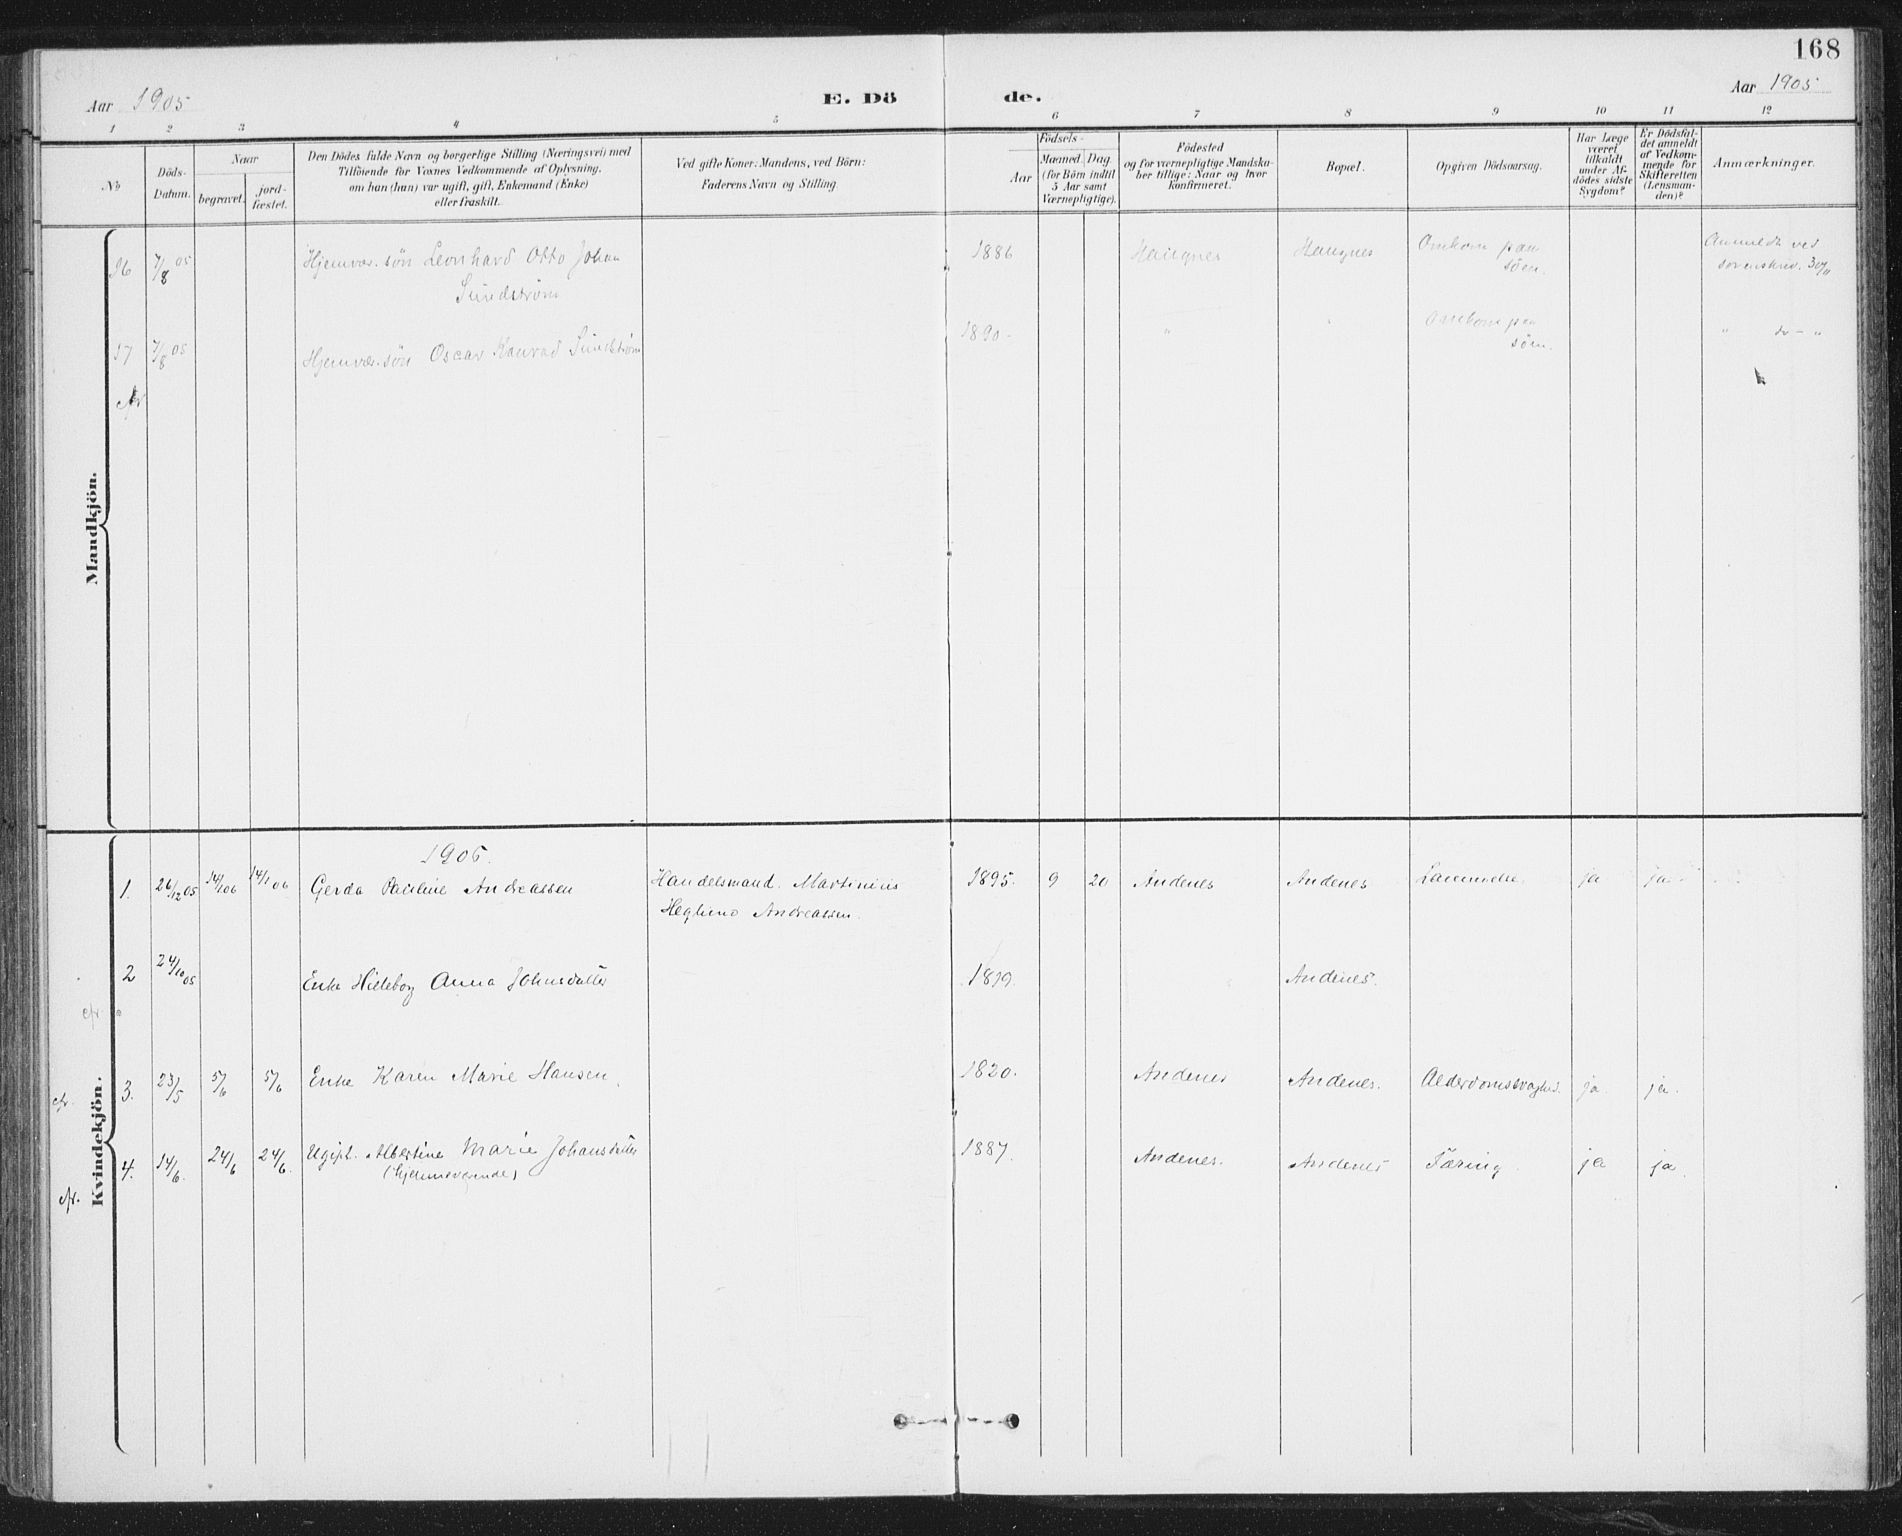 168
Aar 1905
E. Dö
de.
Aar 1905
1 2 3 4 5 6 7 8 9 10 11 12
No
Döds-
Datum.
Naar
begravet.
jord-
fæstet.
Den Dödes fulde Navn og borgerlige Stilling (Næringsvei) med
Tilföiende for Voxnes Vedkommende af Oplysning,
om han (hun) var ugift, gift, Enkemand (Enke)
eller fraskilt.
Ved gifte Koner: Mandens, ved Börn:
Faderens Navn og Stilling.
Födsels-
Aar
Maaned Dag
(for Börn indtil
5 Aar samt
Værnepligtige).
Födested
og for værnepligtige Mandska-
ber tillige: Naar og hvor
konfirmeret.
Bopæl.
Opgiven Dödsaarsag.
Har Læge
været
tilkaldt
under Af-
dödes sidste
Sygdom?
Er Dödsfal-
det anmeldt
af Vedkom-
mende for
Skifteretten
(Lensman-
den)?
Anmærkninger.
Mandkjön.
16 7/8 05 Hjemvær. sön Leonhard Otto Johan 1886 Haugnes Haugnes Omkom paa Anmeldt ved
Sundström söen. sorenskriv. 30/11
17 7/8 05 Hjemvær. sön Oscar Konrad Sundström 1890 - " " Omkom paa " do - "
söen.
Kvindekjön.
1906.
1. 26/12 05 14/1 06 14/1 06 Gerda Pauline Andreassen Handelsmand. Martinius 1895. 9 20 Andenes Andenes ja ja
Andreassen.
2 24/10 05 Enke Anna Johnsdatter 1819. Andenes.
cfr.
3. 23/5 5/6 5/6 Enke Karen Marie Hansen. 1820. Andenes Andenes. Alderdomssvaghed. ja ja.
cfr.
4. 14/6. 24/6 24/6. Ugift. Albertine Marie Johansdatter 1887. Andenes. Andenes Tæring. ja ja.
(hjemmeværende)
cfr.